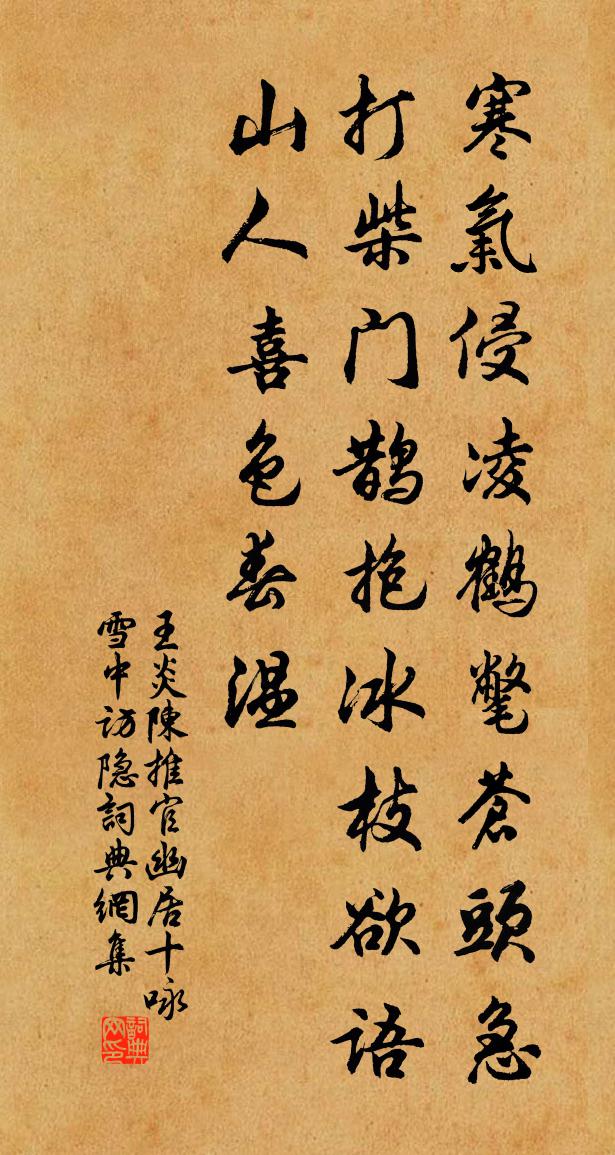 寒氣侵凌鶴氅蒼頭急
打柴门鵲抱冰枝欲语
山人喜色春温
王炎陳推官幽居十咏
雪中访隐詞典網集
詞典
网印